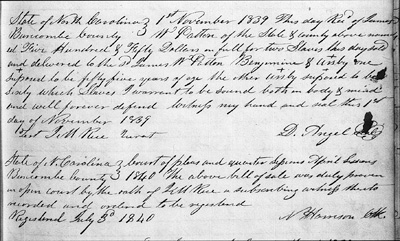 State of North Carolina } 1st November 1839 This day Recd of James
Buncombe County } W Patton of the State & county above named
Five Hundred & Fifty Dollars in full for two Slaves this day sold
and delivered to the Sd James W Patton Benjamine & one
suposed to be fifty five years of age the other suposed to be
Sixty which Slaves I warrant to be sound both in body & mind
and will forever defend Witness my hand and seal this 1st
day of November 1839
Test J. M Rice Jurat D. Angel
State of N Carolina } Court of pleas and quarter sessions April Sessions
Buncombe County } 1840 The above bill of sale was duly proven
in open court by the oath of J M Rice a subscribing witness thereto
recorded and ordered to be registered
Registered July 3d 1840 N Harrison Clk